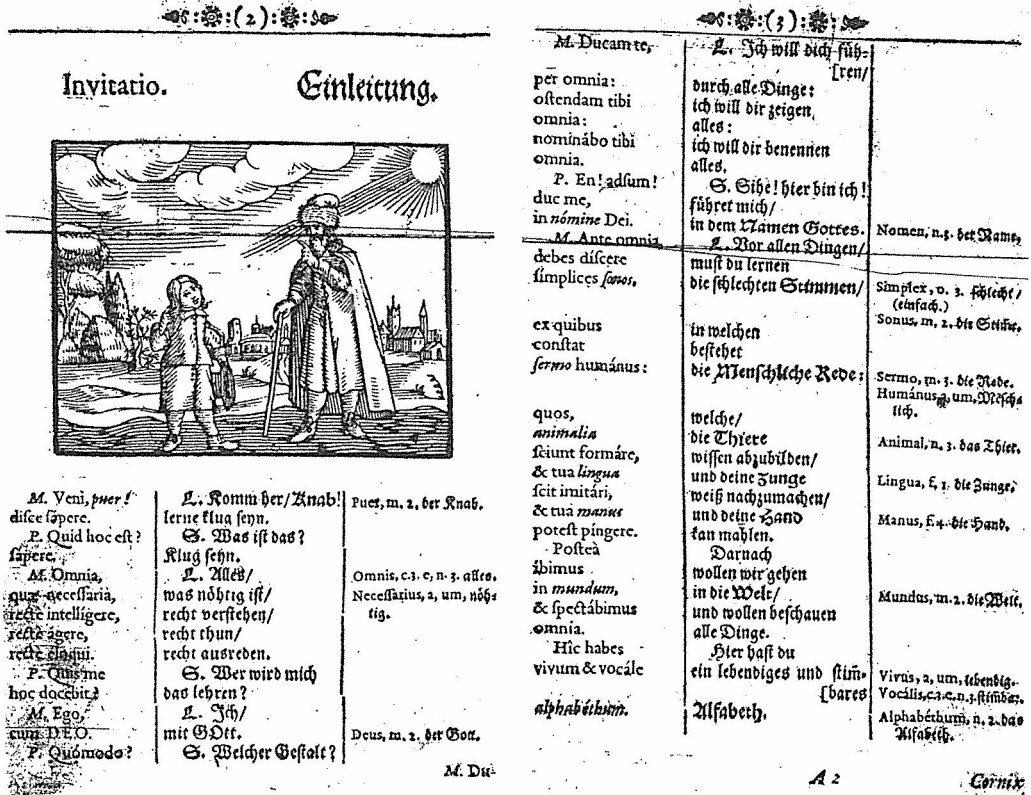 (2)
Invitatio.
Einleitung.
M. Veni, puer!
disce sapere.
P. Quid hoc est?
sapere.
M. Omnia,
quæ necessaria,
rectè intelligere,
rectè agere,
rectè eloqui.
P. Quis me
hoc docebit?
M. Ego,
cum DEO.
P. Quómodo?
L. Komm her/ Knab!
lerne klug seyn.
S. Was ist das?
Klug seyn.
L. Alles/
was nöhtig ist/
recht verstehen/
recht thun/
recht ausreden.
S. Wer wird mich
das lehren?
L. Ich/
mit GOtt.
S. Welcher Gestalt?
Puer, m. 2. der Knab.
Omnis, c.3. e, n. 3. alles.
Necessarius, a, um, nöh-
tig.
Deus, m. 2. der Gott.
M. Du-
(3)
M. Ducam te,
per omnia:
ostendam tibi
omnia:
nominábo tibi
omnia.
P. En! adsum!
duc me,
in nómine Dei.
M. Ante omnia
debes discere
simplices sonos,
ex quibus
constat
sermo humánus:
quos,
animalia
sciunt formáre,
& tua lingua
scit imitári,
& tua manus
potest píngere.
Posteà
ibimus
in mundum,
& spectábimus
omnia.
Hîc habes
vivum & vocále
alphabéthum.
L. Ich will dich füh-
[ren/
durch alle Dinge:
ich will dir zeigen,
alles:
ich will dir benennen
alles.
S. Sihe! hier bin ich!
führet mich/
in dem Namen Gottes.
L. Vor allen Dingen/
must du lernen
die schlechten Stimmen/
in welchen
bestehet
die Menschliche Rede:
welche/
die Thiere
wissen abzubilden/
und deine Zunge
weiß nachzumachen/
und deine Hand
kan mahlen.
Darnach
wollen wir gehen
in die Welt/
und wollen beschauen
alle Dinge.
Hier hast du
ein lebendiges und stim-
[bares
Alfabeth.
Nomen, n. 3. der Name,
Simplex, o. 3. schlecht/
(einfach.)
Sonus, m. 2. die Stime,
Sermo, m. 3. die Rede.
Humánus, a, um, Mēsch-
lich.
Animal, n. 3. das Thier.
Lingua, f. 1. die Zunge.
Manus, f. 4. die Hand.
Mundus, m. 2. die Welt.
Vivus, a, um, lebendig.
Vocális, c.3. e, n. 3. stimbar.
Alphabéthum, n. 2. das
Alfabeth.
A 2
Cornix